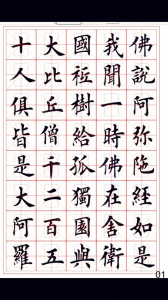 佛說阿弥陀經如是
我聞一時佛在舍衛
國祇樹給孤獨園與
大比丘僧千二百五
十人俱皆是大阿羅
01